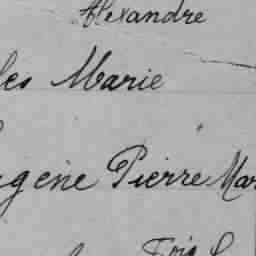 Alexandre
les Marie
gène Pierre Mar